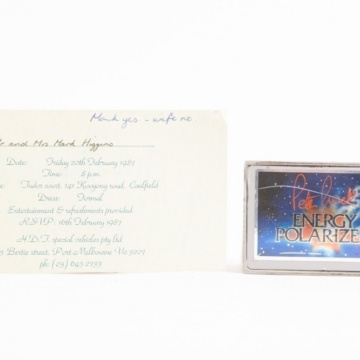 Mark yes - wife no
and Mrs Mark Higgins
Date: Friday 20th February 1987
Time: 8 p.m.
Tudor court, 141 Kooyong road, Caulfield
Dress: Formal
Entertainment & refreshments provided
R.S.V.P: 16th February 1987
H.D.T. special vehicles pty ltd
Bertie street, Port Melbourne Vic 3207
ph: (03)
ENERGY
POLARIZE